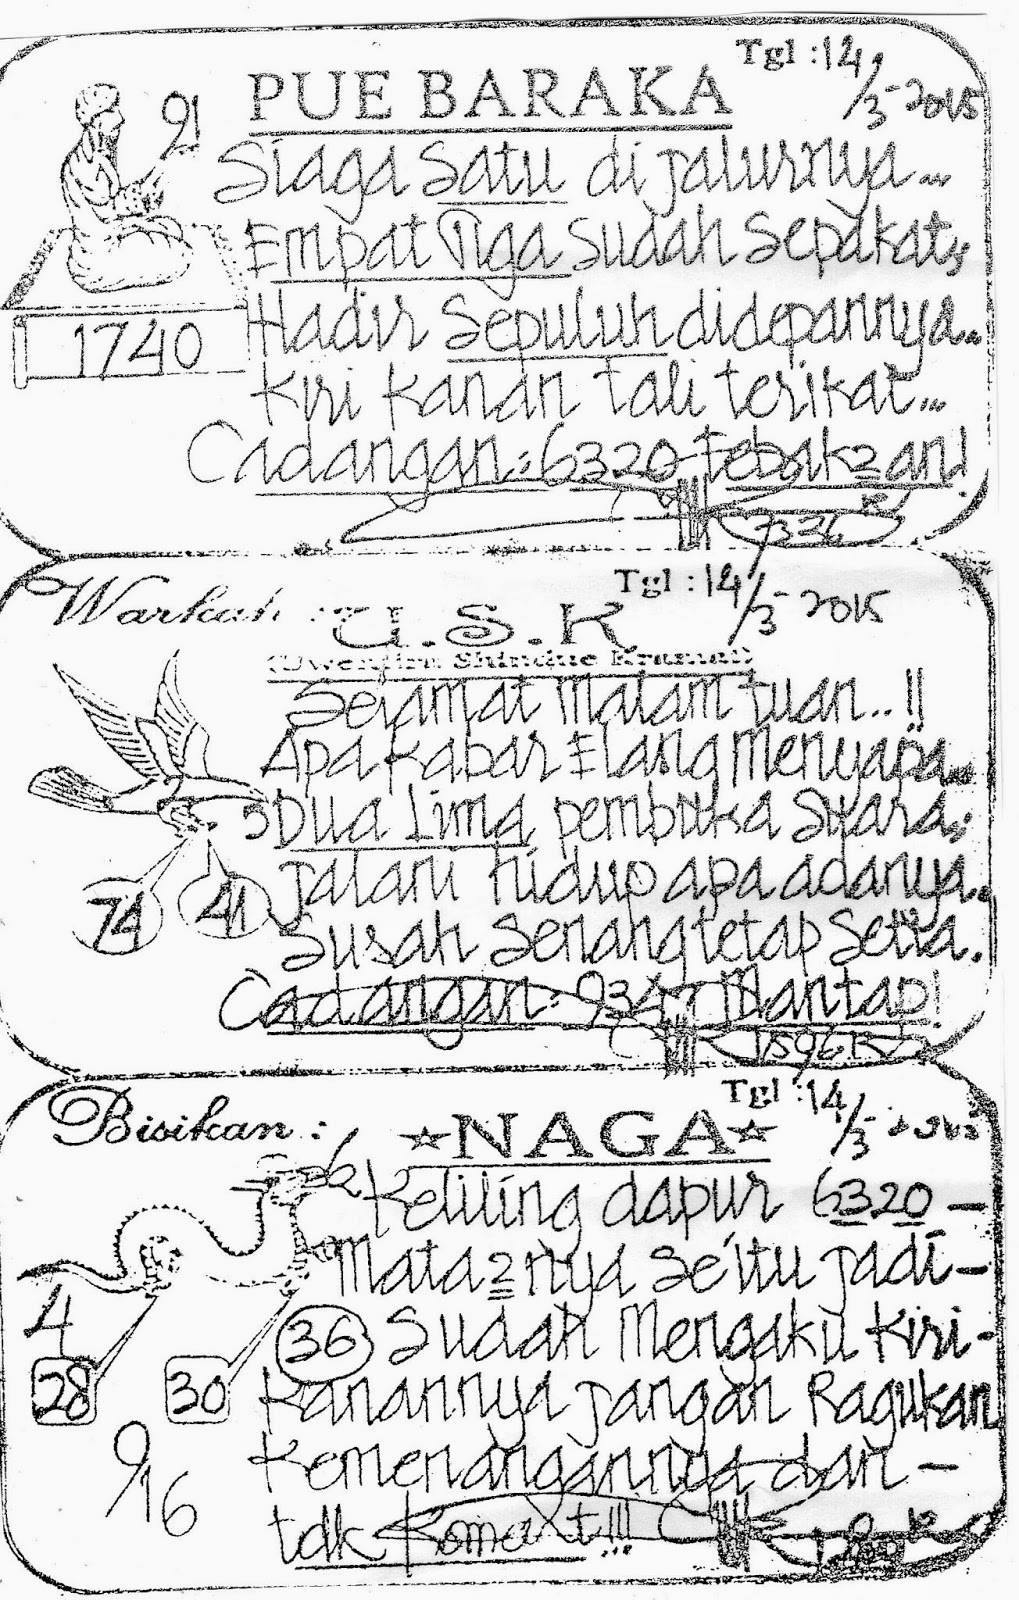 Tgl : 14/3-2015
PUE BARAKA
91
Siaga Satu di jalurnya...
Empat Tiga Sudah Sepakat,,
Hadir Sepuluh didepannya..
1740
Kiri Kanan tali terikat...
Cadangan : 6320 tebak2an!
Warkah : U.S.K
Tgl : 14/3-2015
Selamat Malam tuan..!!
Apa Kabar Elang Menyapa...
5 Dua Lima pembuka Suara,,
74 41
jalani hidup apa adanya.
Susah Senang tetap Setia.
Cadangan : 9347 Mantap!
Tgl : 14/3
Bisikan : NAGA
6
Keliling dapur 6320 -
Mata2nya Se'itu jadi -
4
36 Sudah Mengaku Kiri -
28 30
Kanannya jangan Ragukan
9/16
Kemenangannya dan -
tdk Komat!!!